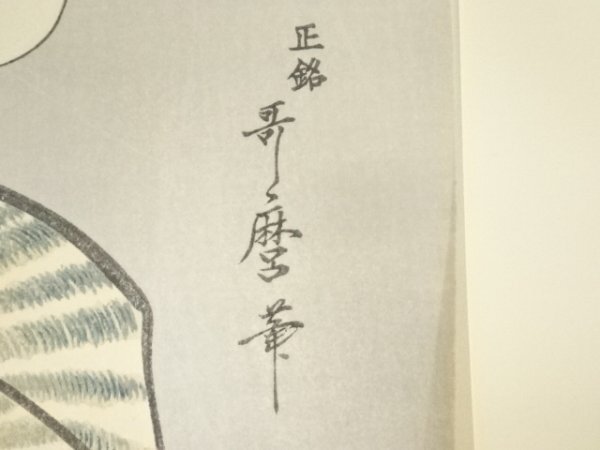 正銘哥麿筆